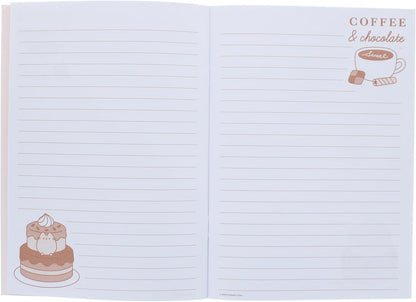 COFFEE
& chocolate
Sweet